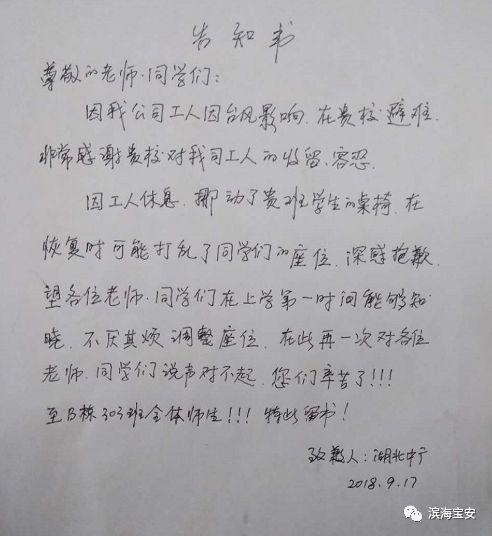 告知书
尊敬的老师.同学们：
因我公司工人因台风影响.在贵校避难.
非常感谢贵校对我司工人的收留.容忍.
因工人休息.挪动了贵班学生的桌椅.在
恢复时可能打乱了同学们的座位.深感抱歉.
望各位老师.同学们在上学第一时间能够知
晓.不厌其烦调整座位.在此再一次对各位
老师.同学们说声对不起.您们辛苦了!!!
至B栋303班全体师生!!! 特此留书!
致歉人：湖北中宁
2018.9.17
滨海宝安